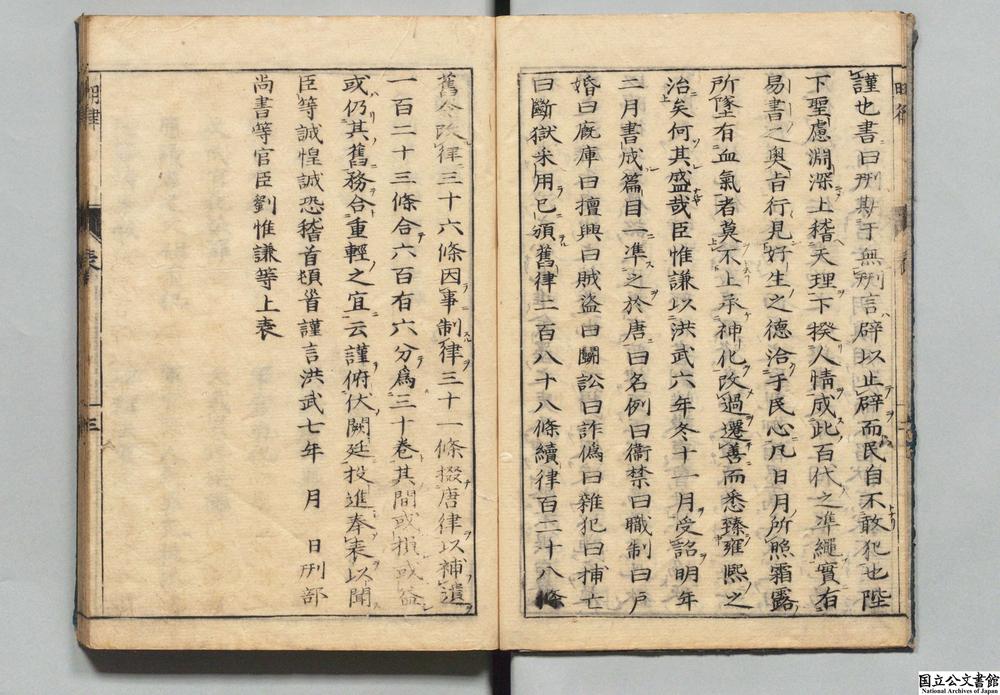 謹也書曰刑期于無刑言辟以止辟而民自不敢犯也陛
下聖慮淵深上稽天理下揆人情成此百代之準繩實有
易書之奥旨行見好生之德洽于民心凡日月所照霜露
所墜有血氣者莫不上承神化改過遷善而悉臻雍熙之
治矣何其盛哉臣惟謙以洪武六年冬十一月受詔明年
二月書成篇目一準之於唐曰名例曰衞禁曰職制曰戶
婚曰廐庫曰擅興曰賊盗曰鬪訟曰詐僞曰雜犯曰捕亡
曰斷獄采用已頒舊律二百八十八條續律百二十八條
舊令改律三十六條因事制律三十一條掇唐律以補遺
一百二十三條合六百有六分爲三十卷其間或損或益
或仍其舊務合重輕之宜云謹俯伏闕廷投進奉表以聞
臣等誠惶誠恐稽首頓首謹言洪武七年　月　日刑部
尚書等官臣劉惟謙等上表
明律
表
三
国立公文書館
National Archives of Japan